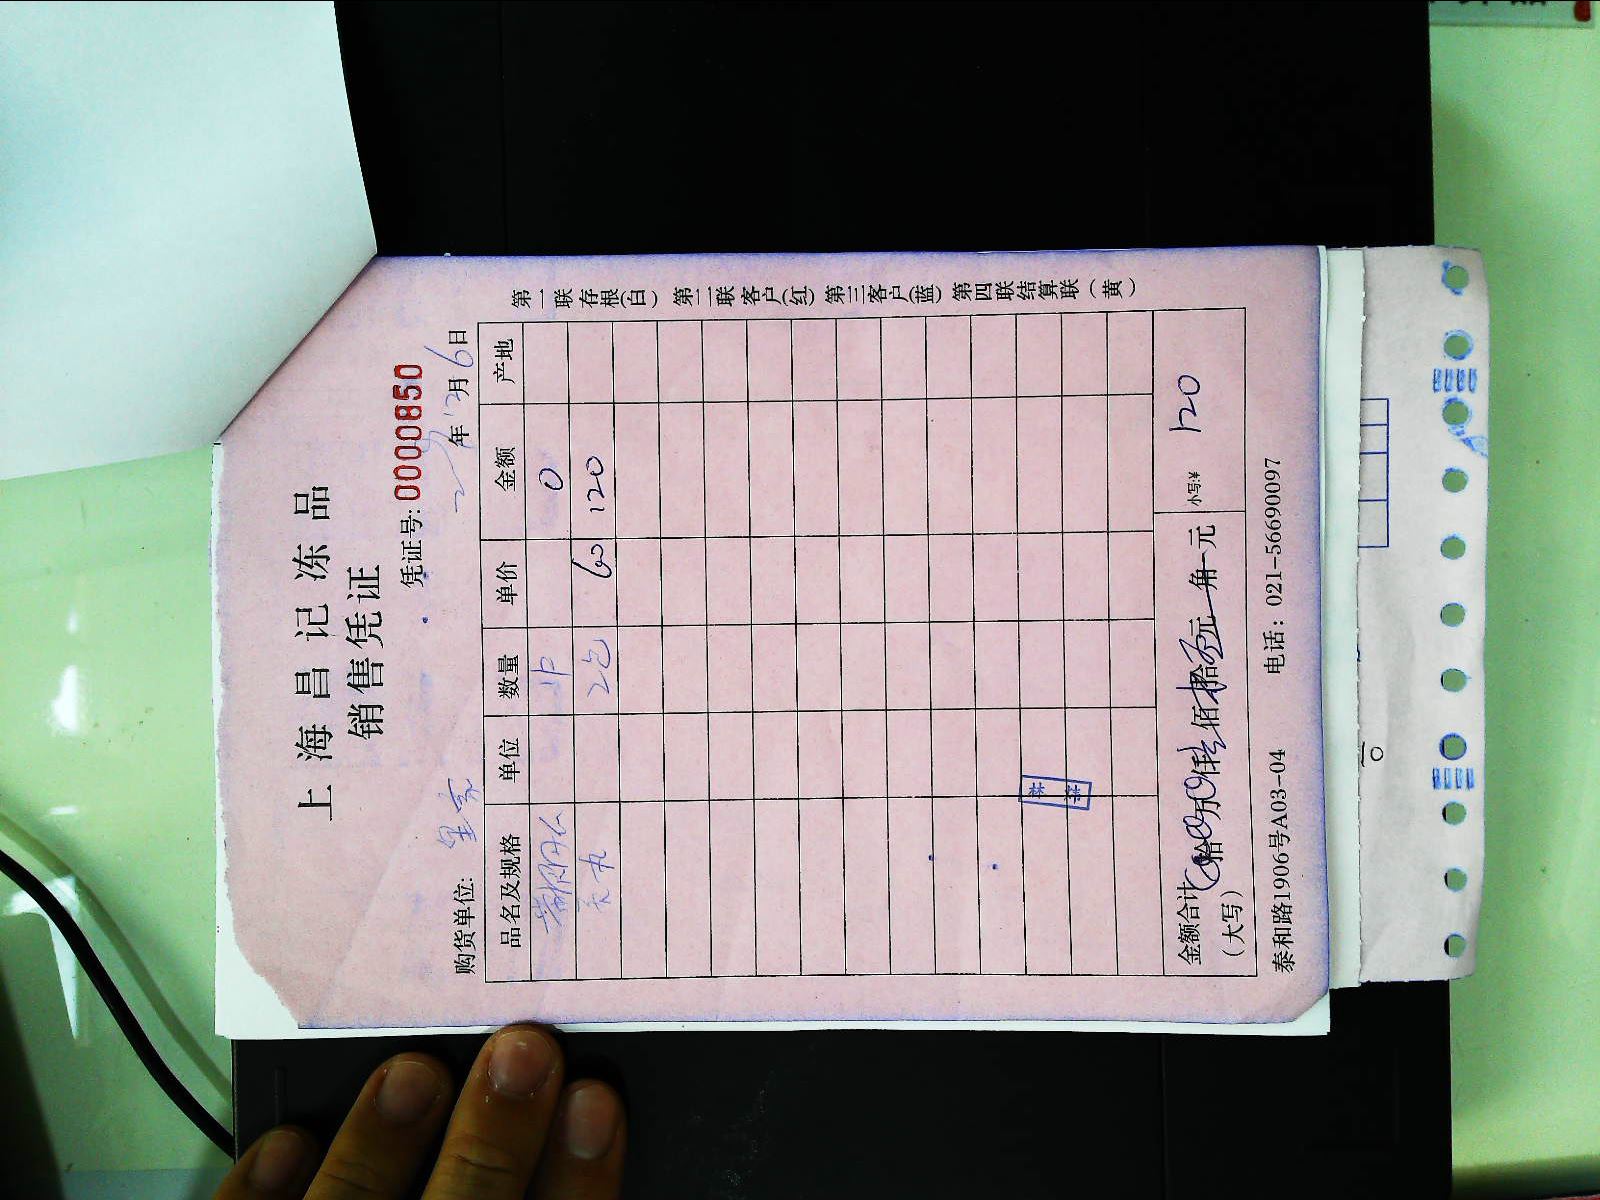 上海昌记冻品
销售凭证
凭证号: 0000850
年12月6日
购货单位:
品名及规格 单位 数量 单价 金额 产地
0
2包 60 120
金额合计 拾万仟佰拾元角元 小写:¥ 120
(大写)
泰和路1906号A03-04 电话: 021-56690097
第一联存根(白) 第二联客户(红) 第三客户(蓝) 第四联结算联(黄)